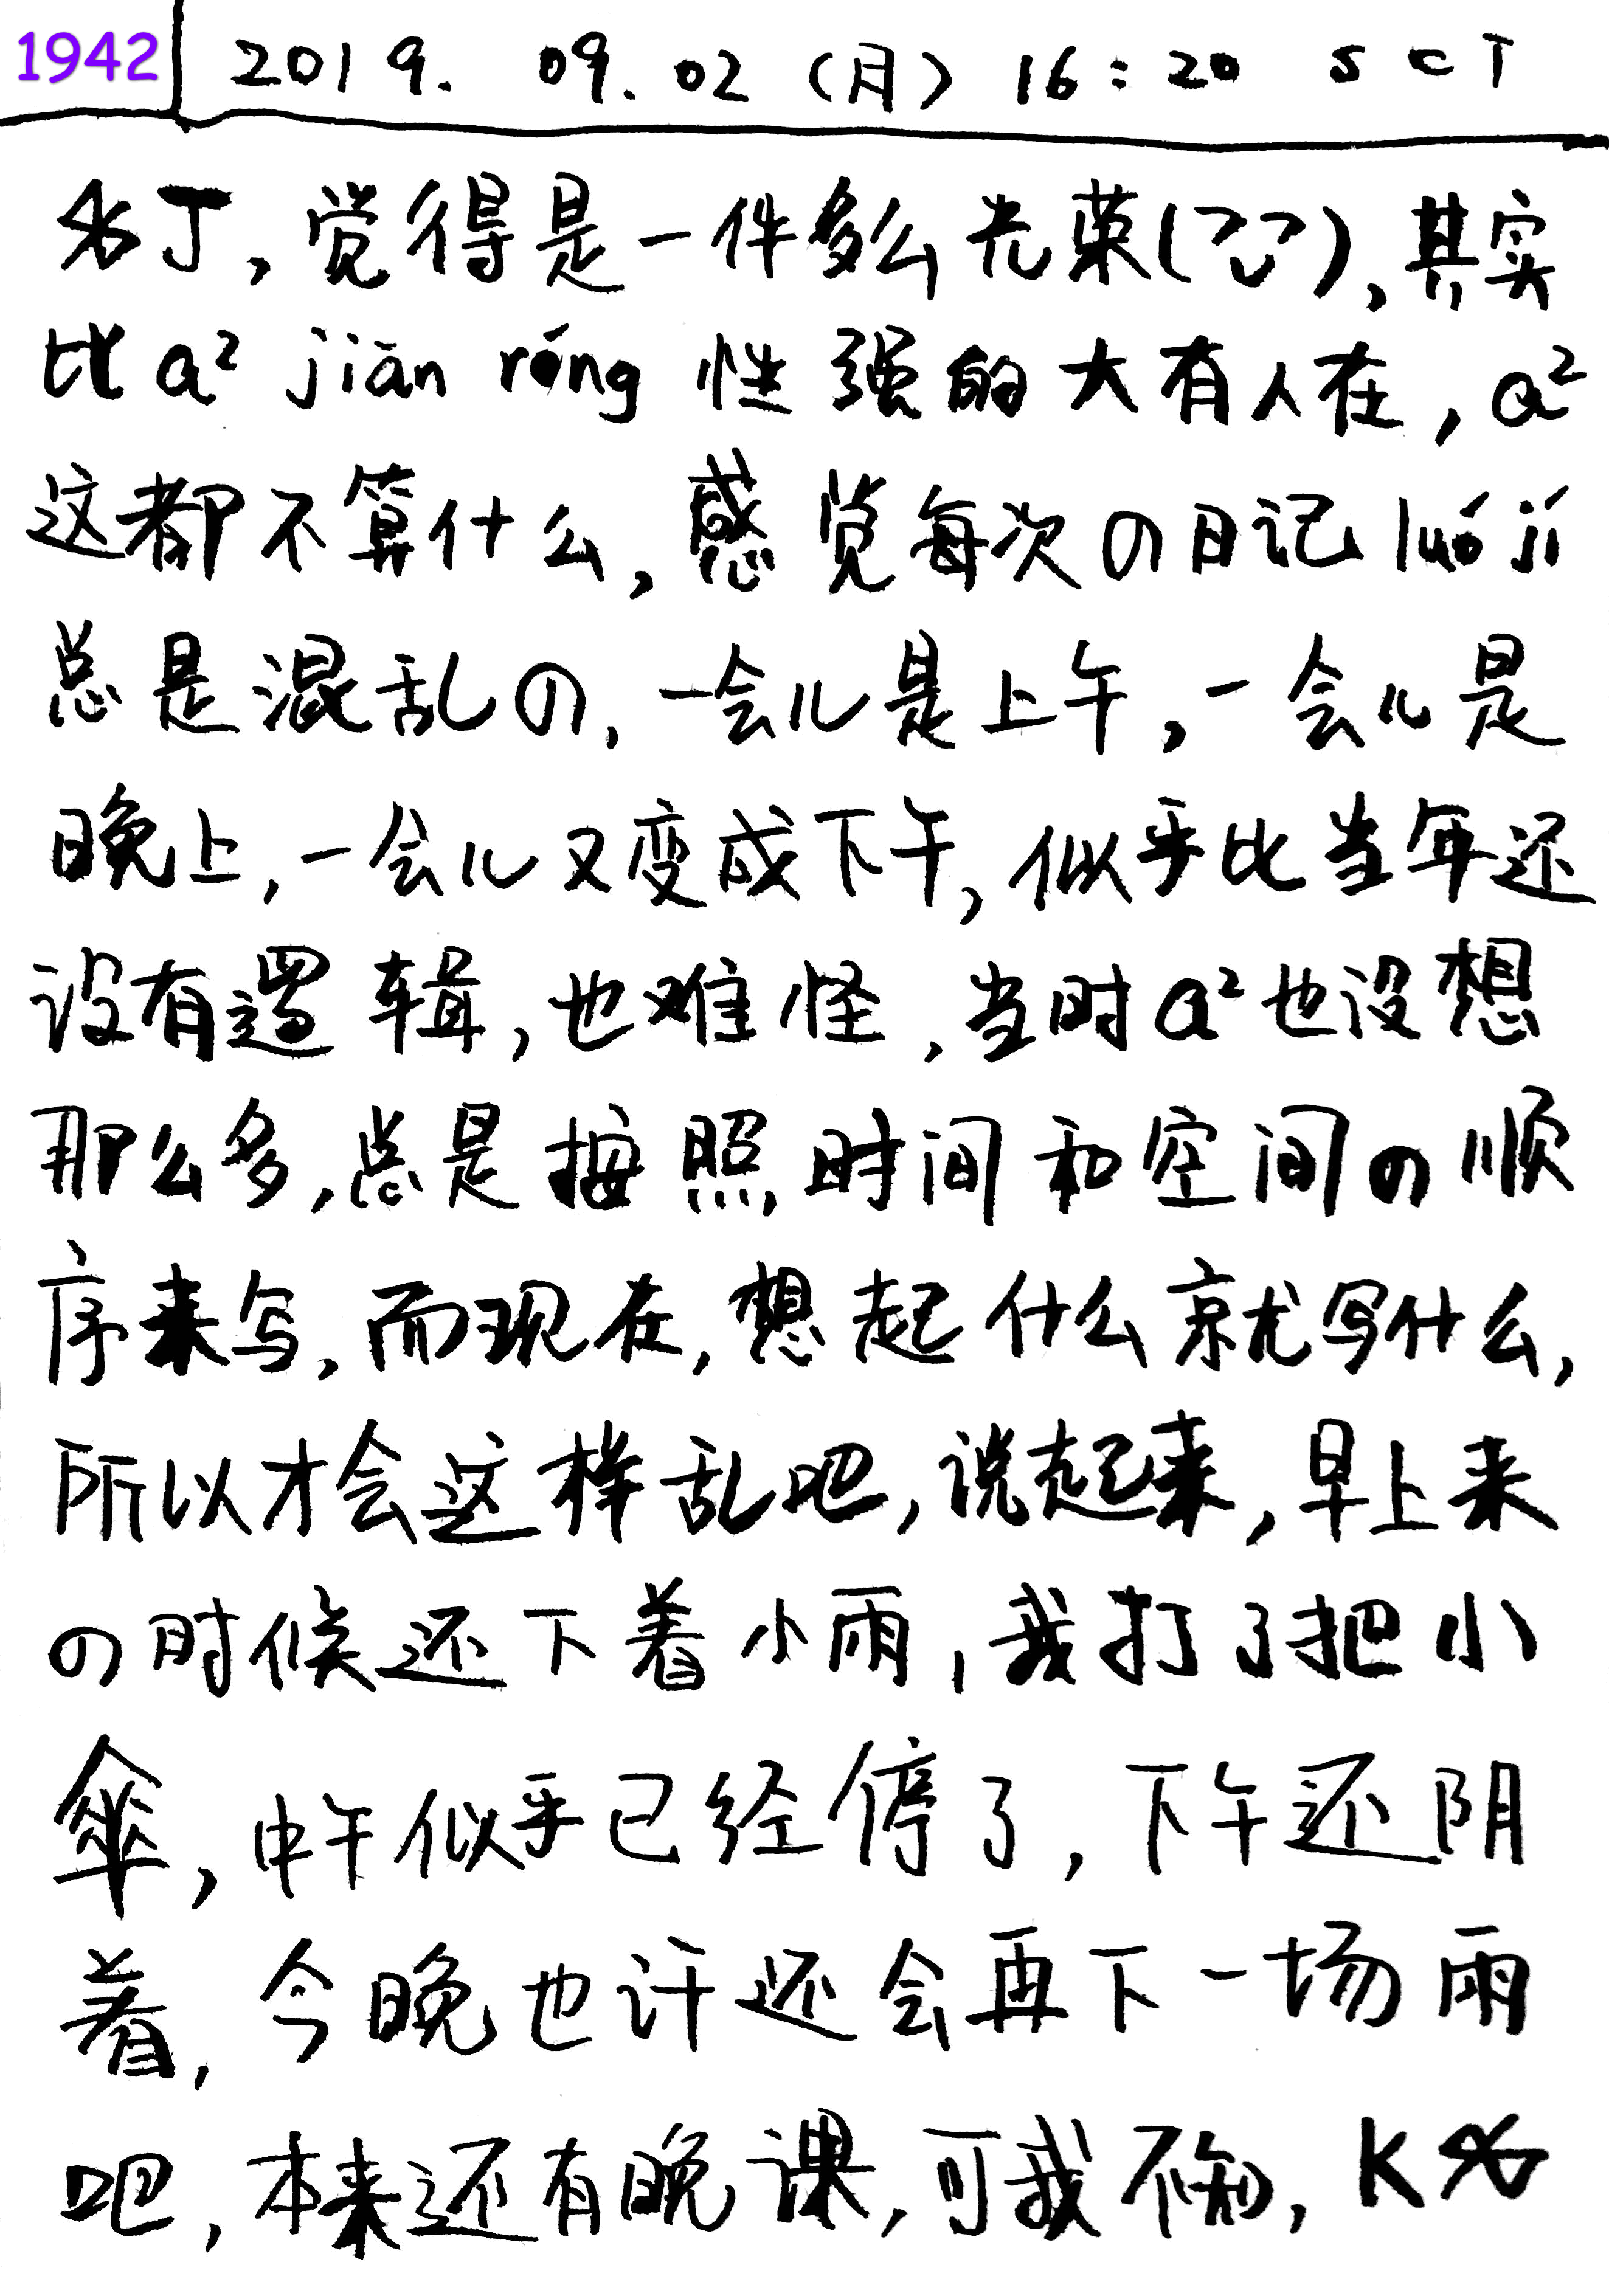 1942 2019. 09. 02 (月) 16:20 SCT
丁, 觉得是一件多么光荣(), 其实
比a² jiān róng 性强的大有人在, a²
这都不算什么, 感觉每次の日记 luó jí
总是混乱の, 一会儿是上午, 一会儿是
晚上, 一会儿又变成下午, 似乎比当年还
没有逻辑, 也难怪, 当时a²也没想
那么多, 总是按照时间和空间の顺
序来写, 而现在, 想起什么就写什么,
所以才会这样乱吧, 说起来, 早上来
の时候还下着小雨, 我打了把小
伞, 中午似乎已经停了, 下午还阴
着, 今晚也许还会再下一场雨
吧, 本来还有晚课, 可我不知, K